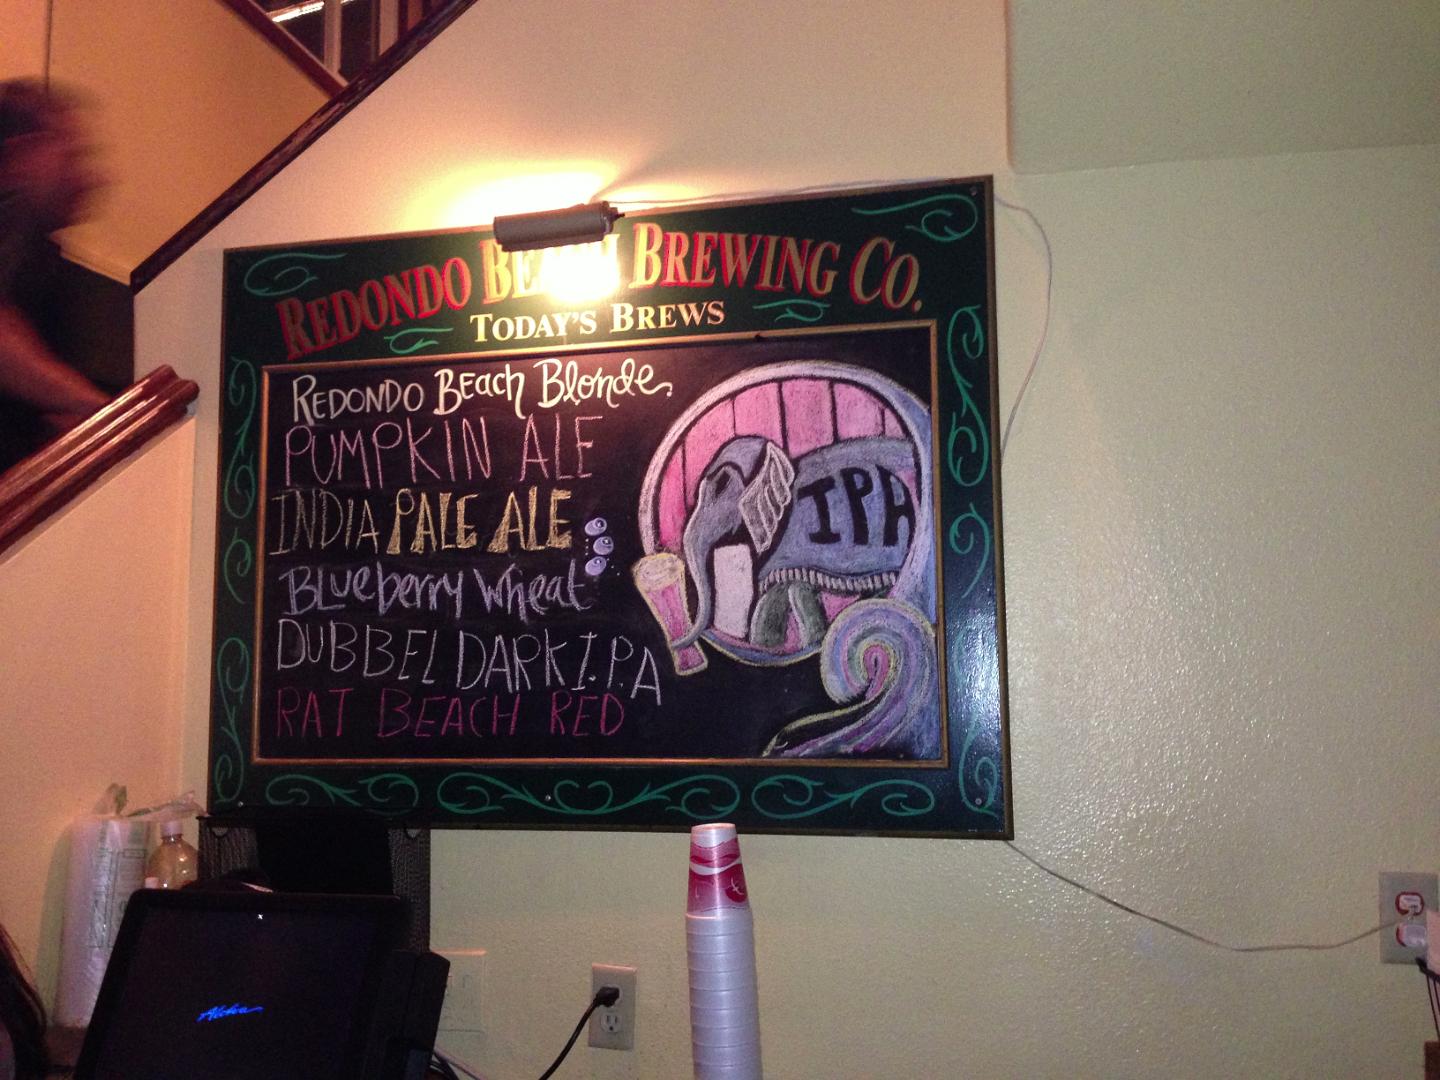 REDONDO BEACH BREWING CO.
TODAY'S BREWS
REDONDO BEACH BLONDE
PUMPKIN ALE
INDIA PALE ALE
BLUEBERRY WHEAT
DUBBEL DARK I.P.A
RAT BEACH RED
IPA
Aloha